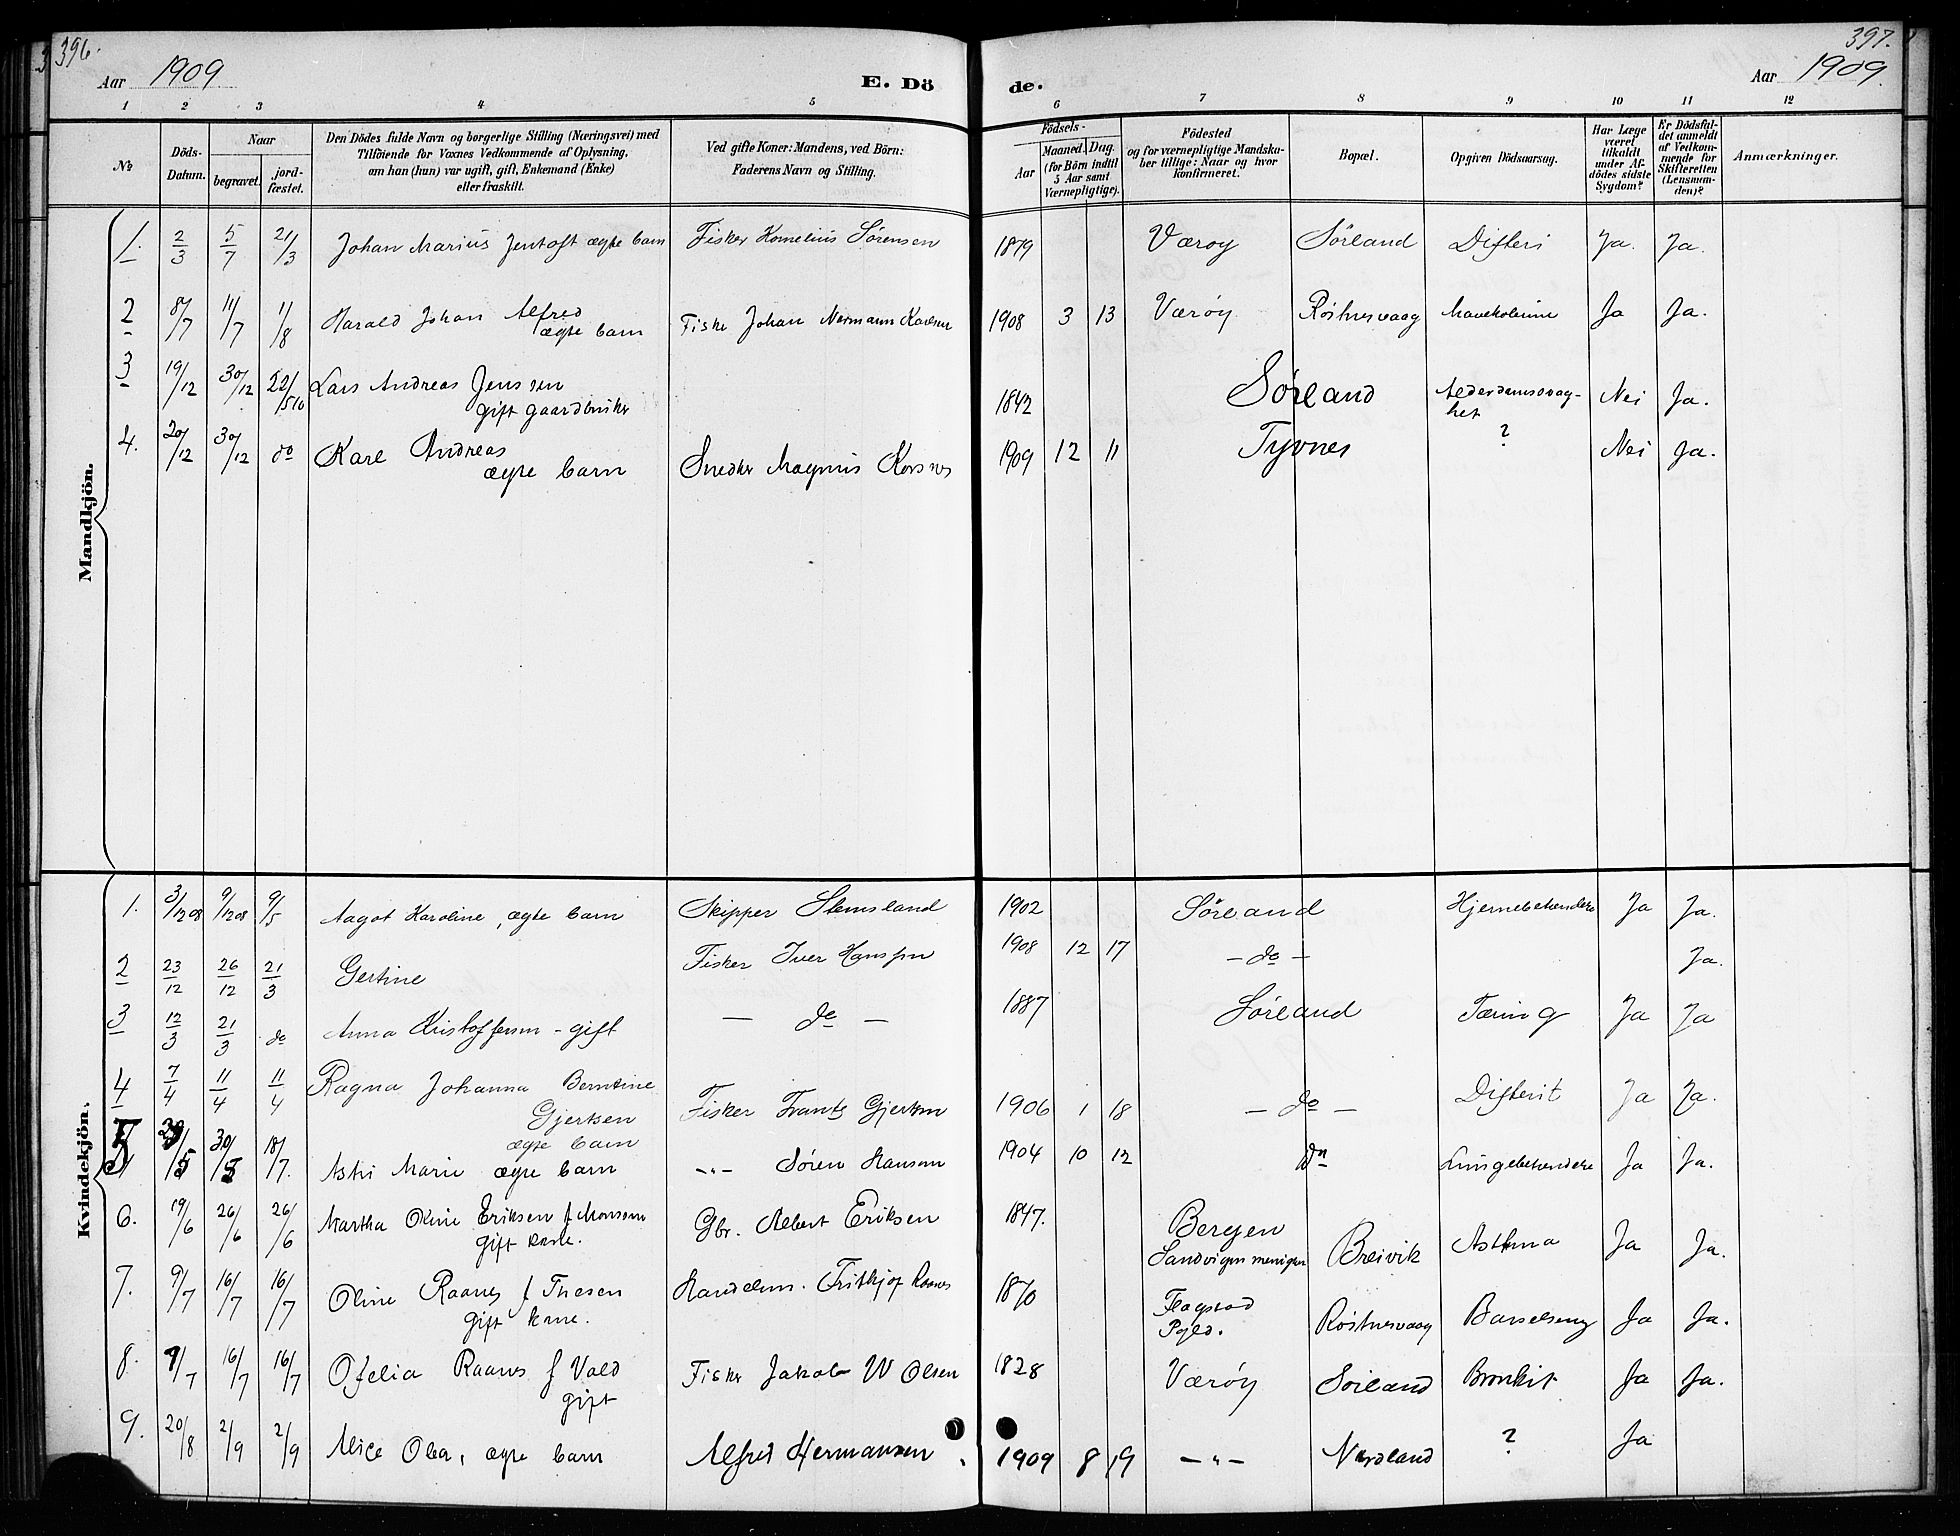 396.
397.
Aar 1909.
E. Dö
de.
Aar 1909.
1 2 3 4 5 6 7 8 9 10 11 12
No
Döds-Datum.
Naar
begravet.
jord-fæstet.
Den Dödes fulde Navn og borgerlige Stilling (Næringsvei) med
Tilföiende for Voxnes Vedkommende af Oplysning,
om han (hun) var ugift, gift, Enkemand (Enke)
eller fraskilt.
Ved gifte Koner: Mandens, ved Börn:
Faderens Navn og Stilling.
Födsels-
Aar
Maaned. Dag.
(for Börn indtil
5 Aar samt
Værnepligtige).
Födested
og for værnepligtige Mandska-
ber tillige: Naar og hvor
konfirmeret.
Bopæl.
Opgiven Dödsaarsag.
Har Læge
været
tilkaldt
under Af-
dödes sidste
Sygdom?
Er Dödsfal-
det anmeldt
af Vedkom-
mende for
Skifteretten
(Lensman-
den)?
Anmærkninger.
Mandkjön.
1. 2/3 5/7 21/3 Johan Marius Jentoft ægte barn Fisker Kornelius Sörensen 1879 Værøy Sörland Difteri Ja. Ja.
2 8/7 11/7 1/8 Harald Johan Alfred
ægte barn Fisker Johan Normann Karlsen 1908 3 13 Værøy Röstnesvaag Mavekolerine Ja Ja.
3 19/12 30/12 22/5 10 Lars Andreas Jenssen
gift gaardbruker 1842 Sørland Alderdomssvag-
het Nei Ja.
4. 20/12 30/12 do Karl Andreas
ægte barn Snedker Magnus 1909 12 11 Tyvnes ? Nei Ja.
Kvindekjön.
1. 3/12 08 9/12 08 9/5 Aagot Karoline, ægte barn Skipper Stensland 1902 Sörland Hjernebetændelse Ja Ja.
2 23/12 26/12 21/3 Gertine Fisker Iver Hanssen 1908 12 17 - do - Ja.
3 12/3 21/3 do Anna Kristoffersen - gift - do - 1887 Sörland Tæring Ja Ja
4 7/4 11/4 11/4 Ragna Johanna Berntine
Gjertsen
ægte barn Fisker Frants Gjertsen 1906 1 18 - do - Difterit Ja Ja.
5 29/5 30/5 18/7. Astri Marie ægte barn -"- Søren Hansen 1904 10 12 do Lungebetændelse Ja Ja.
6. 19/6 26/6 26/6 Martha Oline Eriksen f Monsen
gift kone. Gbr. Albert Eriksen 1847. Bergen
Sandvigen menighet Breivik Asthma Ja Ja.
7. 9/7 16/7 16/7 Oline Raanes f Thesen
gift kone. Handelsm. Fritkjof Raanes 1870 Flagstad
Pgld. Röstnesvaag Barselseng Ja Ja.
8. 9/7 16/7 16/7 Ofelia Raanes f Vold
gift Fisker Jakob W Olsen 1828 Værøy Sörland Bronkit Ja Ja.
9. 20/8 2/9 2/9 Alice Olea, ægte barn Alfred Hermansen 1909 8 19 -"- Nordland ? Ja